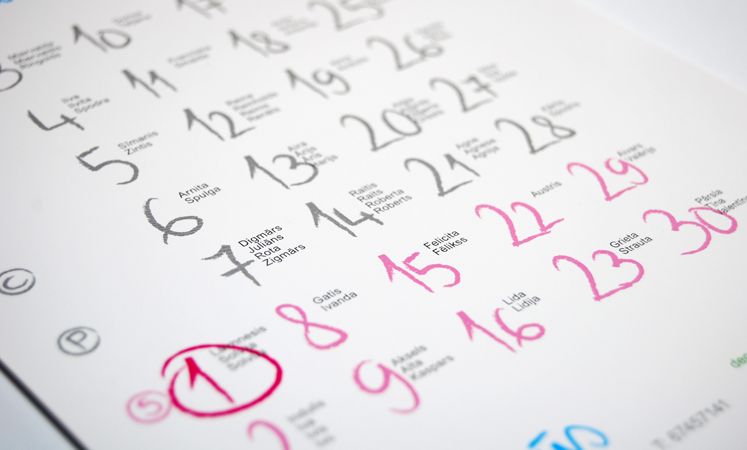 10
17
4
Ilva
Ilvita
Spodra
11
18
25
5
Sīmanis
Zintis
12
19
26
6
Arnita
Spulga
13
20
27
7
Digmārs
Juliāns
Rota
Zigmārs
14
Raitis
Raits
Roberta
Roberts
21
Agne
Agnese
Agnija
28
C
P
S
1
Laimnesis
Solvita
8
Gatis
Ivanda
15
Felicita
Fēlikss
22
Austris
29
Aivars
Valērijs
2
9
Aksels
Alta
Kaspars
16
Lida
Lidija
23
Grieta
Strauta
30
Pārsla
Tīna
T: 67457141